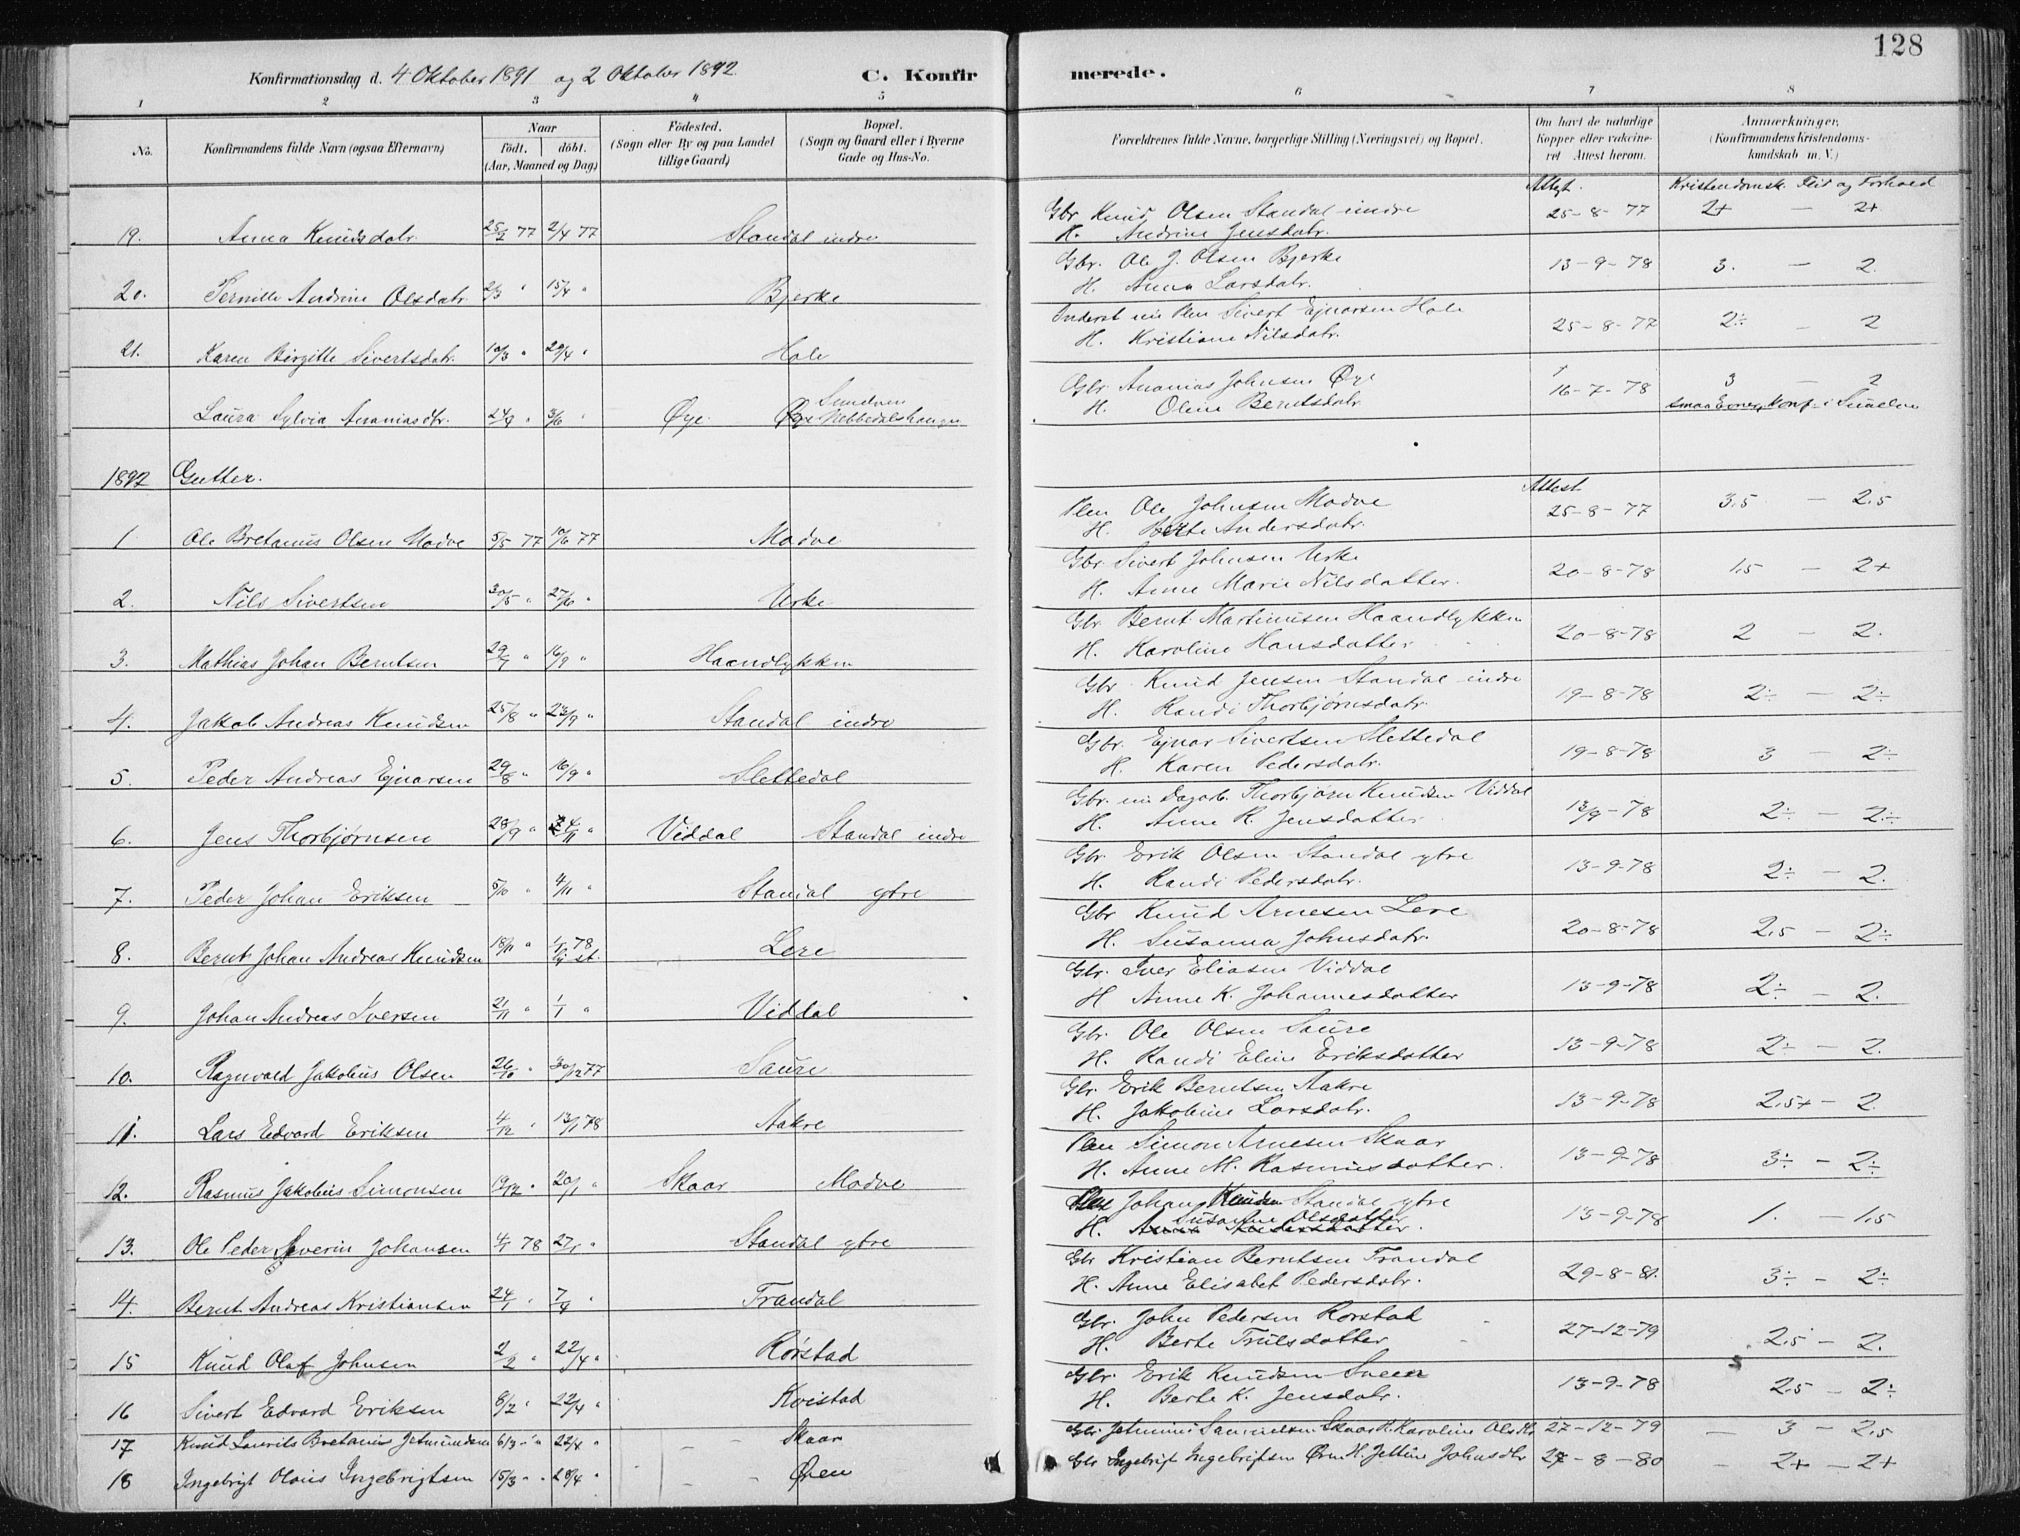 128
Konfirmationsdag d. 4 Oktober 1891 og 2 Oktober 1892
C. Konfirmerede.
1 2 3 4 5 6 7 8
No. Konfirmandens fulde Navn (ogsaa Efternavn) Naar født. døbt. (Aar, Maaned og Dag) Fødested. (Sogn eller By og paa Landet tillige Gaard) Bopæl. (Sogn og Gaard eller i Byerne Gade og Hus-No. Forældrenes fulde Navne, borgerlige Stilling (Næringsvei) og Bopæl. Om havt de naturlige Kopper eller vakcineret. Attest herom. Anmærkninger. (Konfirmandens Kristendomskundskab m. V.)
Attest. Kristendomsk. Flid og Forhold
19. Anna Knudsdatr. 25/2 77 2/4 77 Standal indre Gbr Knud Olsen Standal indre H. Andrine Jensdatr. 25-8-77 2+ — 2+
20. Pernille Andrine Olsdatr. 2/3 " 15/4 " Bjerke Gbr. Ole J. Olsen Bjerke H. Anna Larsdatr. 13-9-78 3. — 2.
21. Karen Birgitte Sivertsdatr. 10/3 " 29/4 " Hole Inderst Sivert Ejnarsen Hole H. Kristiane Nilsdatr. 25-8-77 2÷ — 2
Laura Sylvia Ananiasdtr. 24/4 " 3/6 Øye Øye Gbr Ananias Johnsen Øye H. Oline Berntsdatr. 16-7-78 3 — 2 smaa Evner, Konf. i
1892 Gutter.
Attest
1 Ole Bretanus Olsen Modve 5/5 77 10/6 77 Modve Plm Ole Johnsen Modve H. Berte Andersdatr. 25-8-77 3.5 — 2.5
2. Nils Sivertsen 30/5 " 27/6 " Urke Gbr Sivert Johnsen Urke H. Anne Marie Nilsdatter. 20-8-78 1.5 — 2+
3. Mathias Johan Berntsen 29/7 " 16/9 " Haandlykken Gbr Bernt Martinusen Haandlykken H. Karoline Hansdatter 20-8-78 2 — 2.
4. Jakob Andreas Knudsen 25/8 " 23/9 " Standal indre Gbr Knud Jensen Standal indre H. Randi Thorbjørnsdatr. 19-8-78 2÷ — 2÷
5. Peder Andreas Ejnarsen 29/8 " 16/9 " Slettedal Gbr. Ejnar Sivertsen Slettedal H. Karen Pedersdatr. 19-8-78 3 — 2÷
6. Jens Thorbjørnsen 28/9 " 4/11 " Viddal Standal indre Gbr. Thorbjørn Knudsen Viddal H. Anne K. Jensdatter 13/9-78 2÷ — 2÷
7. Peder Johan Eriksen 5/10 " 4/11 " Standal ytre Gbr Erik Olsen Standal ytre H. Randi Pedersdatr. 13-9-78 2÷ — 2.
8. Bernt Johan Andreas Knudsen 18/11 " 78 Lere Gbr Knud Arnesen Lere H. Susanna Johnsdatr. 20-8-78 2.5 — 2÷
9. Johan Andreas Iversen 21/11 " 1/1 " Viddal Gbr. Iver Eliasen Viddal H. Anne K. Johannesdatter 13-9-78 2÷ — 2.
10. Ragnvald Jakobus Olsen 26/10 " 30/12 77 Saure Gbr. Ole Olsen Saure H. Randi Eline Eriksdatter 13-9-78 2÷ — 2.
11. Lars Edvard Eriksen 4/12 " 13/1 78 Aakre Gbr. Erik Berntsen Aakre H. Jakobine Larsdatr. 13-9-78 2.5+ — 2.
12. Rasmus Jakobus Simonsen 19/12 " 20/1 " Skaar Modve Plm Simon Arnesen Skaar H. Anne M. Rasmusdatter. 13-9-78 3÷ — 2÷
13. Ole Peder Severin Johansen 4/1 78 27/1 " Standal ytre Johan Knudsen Standal ytre H. Susanne Olsdatter 13-9-78 1. — 1.5
14. Bernt Andreas Kristiansen 24/1 " 7/4 " Trandal Gbr Kristian Berntsen Trandal H. Anne Elisabet Pedersdatr. 29-8-81. 3÷ — 2÷
15 Knud Olaf Johnsen 2/2 " 22/4 " Rørstad Gbr. John Pedersen Rørstad H. Berte Trulsdatter 27-12-79 2.5 — 2.
16 Sivert Edvard Eriksen 8/2 " 22/4 " Kvistad Gbr. Erik Knudsen H. Berte K. Jensdatr. 13-9-78 2.5 — 2÷
17 Knud Laurits Bretanius Jetmundsen 6/3 " 22/4 " Skaar Gbr Jetmund Samuelsen Skaar H. Karoline Olsdtr 27-12-79 — 3 — 2.5
18 Ingebrigt Olaus Ingebrigtsen 15/3 " 28/4 " Øren Gbr Ingebrigt Ingebrigtsen Øren H. Jettine Johnsdtr 27-8-80 — 2+ — 2+